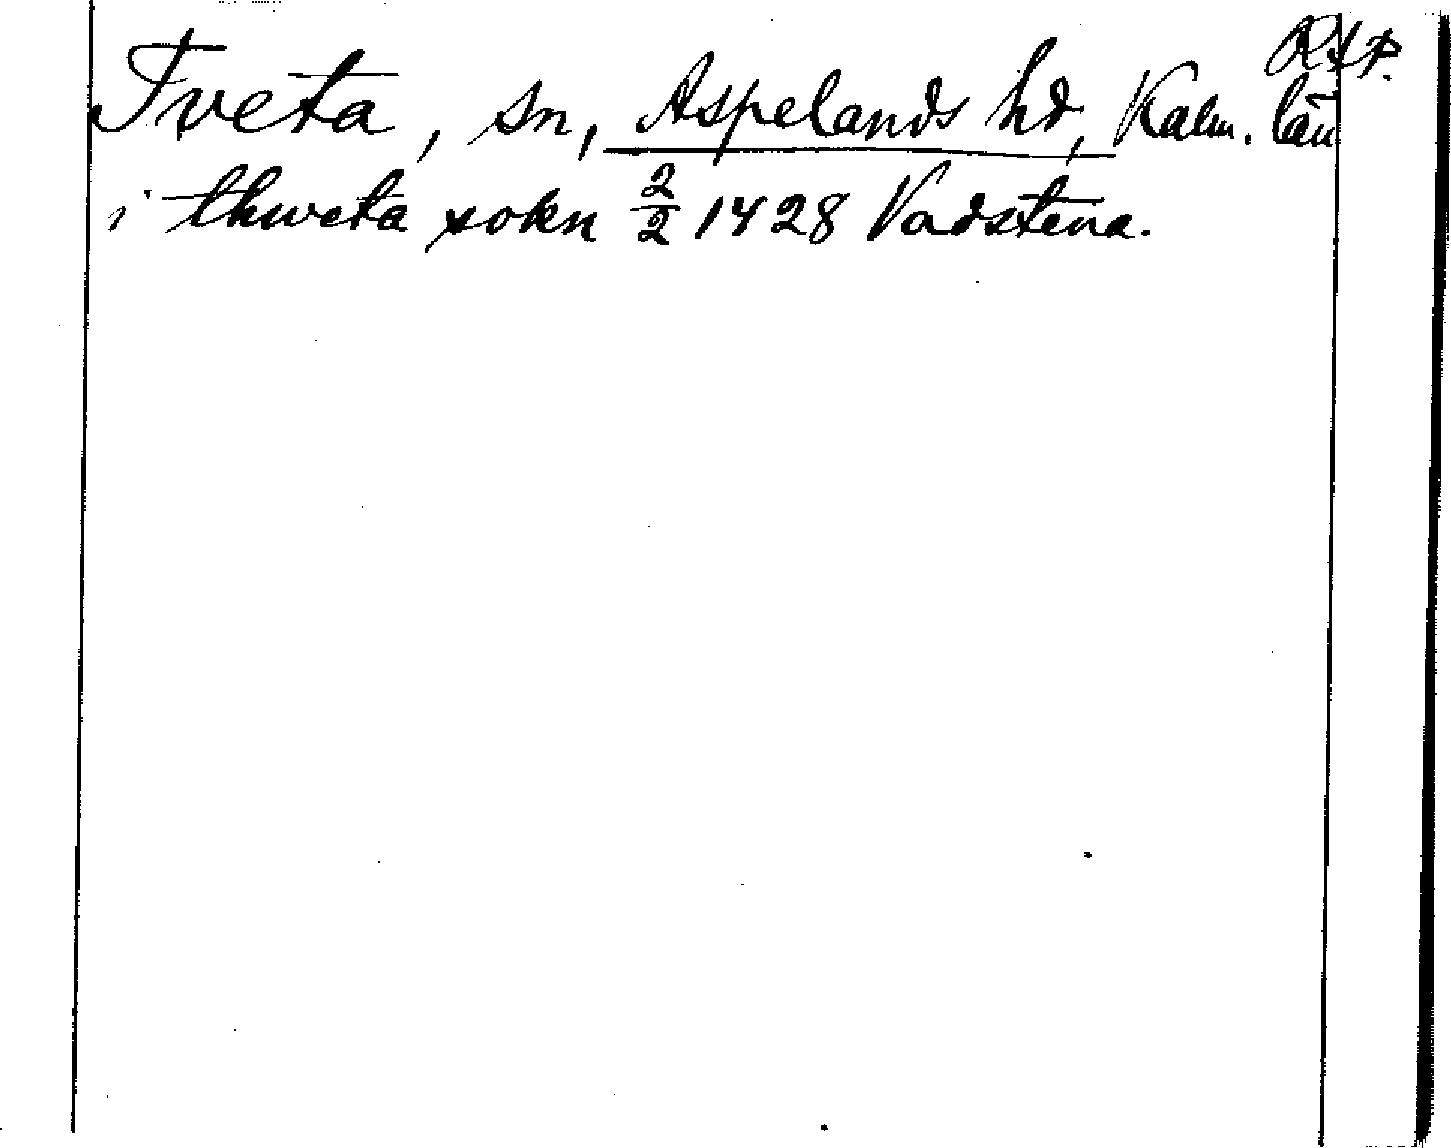 RAP.
Tveta, sn, Aspelands hd, Kalm. län
i thweta sokn 2/2 1428 Vadstena.